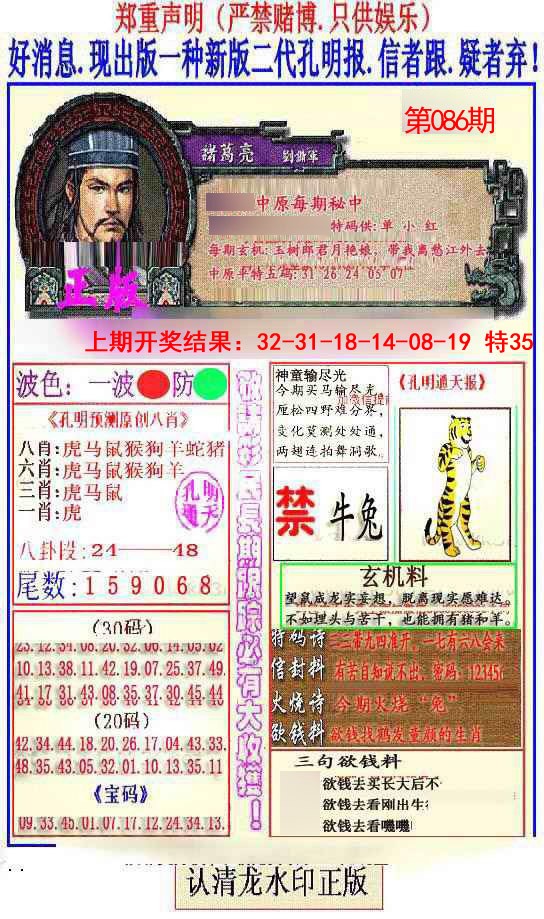 郑重声明（严禁赌博.只供娱乐）
好消息.现出版一种新版二代孔明报.信者跟.疑者弃!
第086期
諸葛亮 劉繼軍
中原每期秘中
特码供:单 小 红
每期玄机:玉树郎君月艳娘，带我离愁江外去
中原平特五码:31 26 24 05 07
正版
上期开奖结果：32-31-18-14-08-19 特35
波色：一波 防
《孔明预测原创八肖》
八肖:虎马鼠猴狗羊蛇猪
六肖:虎马鼠猴狗羊
三肖:虎马鼠
一肖:虎
孔明
通天
八卦段:24———48
尾数:159068
(30码)
23.12.34.08.20.32.06.14.05.02
10.13.38.11.42.19.07.25.37.49
41.17.31.43.08.35.37.30.45.44
(20码)
42.34.44.18.20.26.17.04.43.33.
48.35.43.05.32.01.10.13.35.11
《宝码》
09.33.45.01.07.17.12.24.34.13.
神童输尽光
今期买马输尽光
厘松四野难分界，
变化莫测处处通，
两翅连拍舞洞歌
《孔明通天报》
禁 牛兔
玄机料
望鼠成龙实妄想，脱离现实愿难达
不如埋头与苦干，也能拥有猪和羊。
特码诗 三三带九四准开，一七有六八会来
信封料 有苦自知说不出，密码：12345
火烧诗 今期火烧“兔”
欲钱料 欲钱找鹤发童颜的生肖
三句欲钱料
欲钱去买长大后不
欲钱去看刚出生
欲钱去看嘰嘰
认清龙水印正版